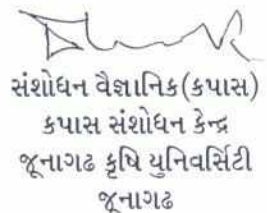 સંશોધન વૈજ્ઞાનિક(કપાસ)
કપાસ સંશોધન કેન્દ્ર
જૂનાગઢ કૃષિ યુનિવર્સિટી
જૂનાગઢ